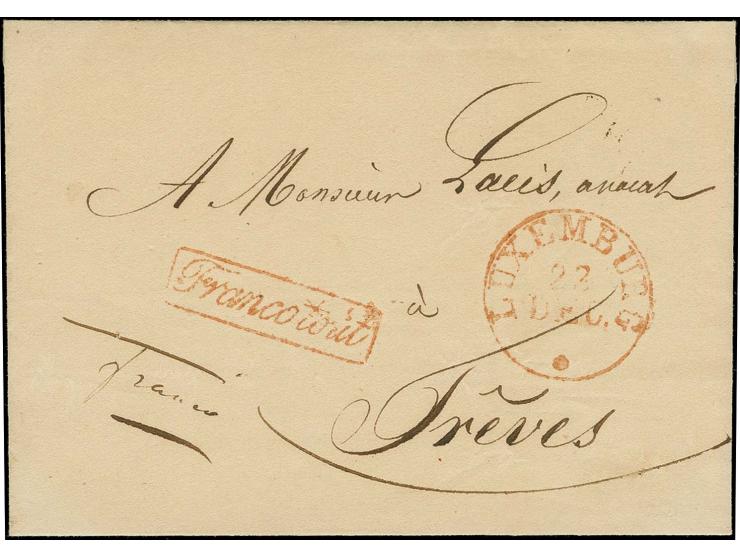 A Monsieur Lacis, avocat
LUXEMBURG
22
DEC.
Franco tout
à
franco
Trêves